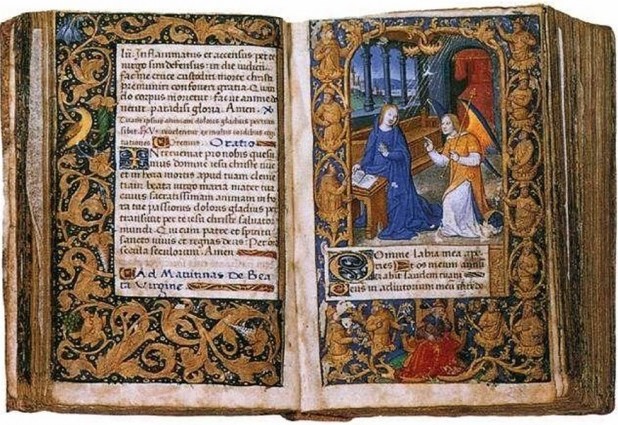 lii. Inflammatus et accensus per te
virgo sim defensus: in die iudicii.
fac me cruce custodiri morte christi
premuniri confoveri gratia. Quan
do corpus morietur: fac ut anime do
netur paradisi gloria. Amen.
Tuam ipsius animam dolores gladius pertran
sibit. Ut revelentur ex multis cordibus cogi
tationes. Oremus. Oratio
Interveniat pro nobis quesu
mus domine iesu christe nunc
et in hora mortis apud tuam clemen
tiam beata virgo maria mater tua
cuius sacratissimam animam in ho
ra tue passionis doloris gladius per
transivit per te iesu christe salvator
mundi. Qui cum patre et spiritu
sancto vivis et regnas deus. Per omnia
secula seculorum. Amen.
Ad Matutinas De Bea
ta Virgine.
Domine labia mea ape
ries Et os meum annu
tiabit laudem tuam
Deus in adiutorium meu intende